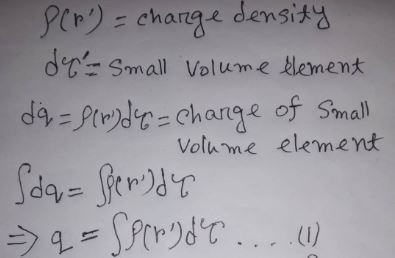 ρ(r') = charge density
dτ' = Small Volume element
dq = ρ(r')dτ = charge of Small
Volume element
∫dq = ∫ρ(r')dτ
⇒ q = ∫ρ(r')dτ . . . . (1)